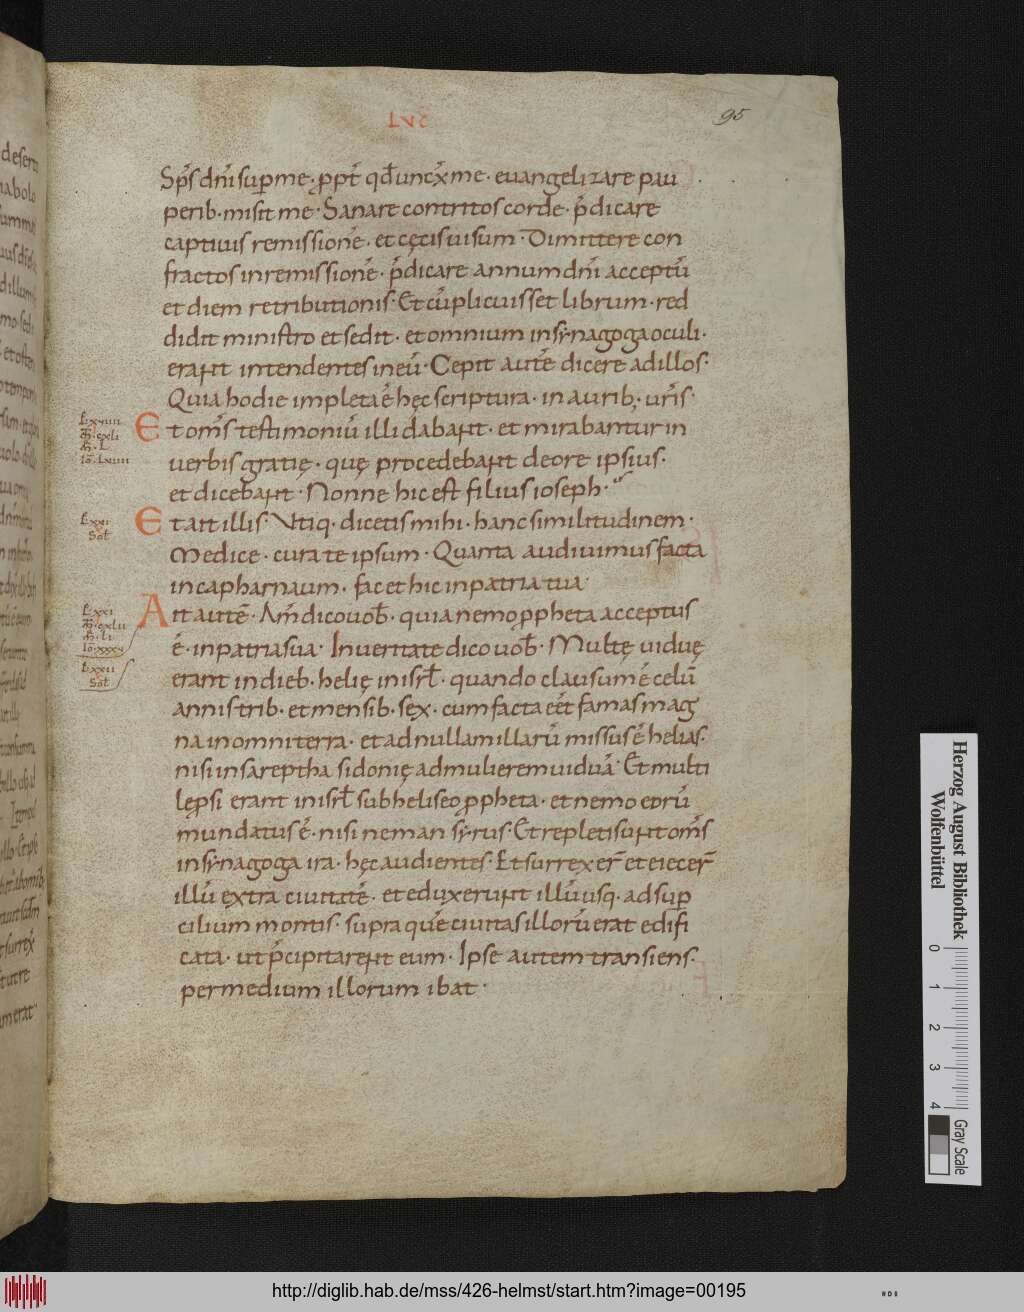 LVC
95
Sp̄s dn̄i sup me · ꝓpt̄ qđ uncx̄ me · euangelizare pau
perib · misit me · Sanare contritos corde · p̄dicare
captiuis remissionē · et cęcis uisum · Dimittere con
fractos in remissionē · p̄dicare annum dn̄i acceptū
et diem retributionis · Et cū plicuisset librum · red
didit ministro et sedit · et omnium in synagoga oculi ·
erant intendentes in eū · Cepit autē dicere ad illos ·
Quia hodie impleta ē hęc scriptura · in aurib; ur̄is ·
Et om̄s testimoniū illi dabant · et mirabantur in
uerbis gratię · quę procedebant de ore ipsius ·
et dicebant · Nonne hic est filius ioseph ·
Et ait illis Vtiq · dicetis mihi · hanc similitudinem ·
Medice · cura te ipsum · Quanta audiuimus facta
in capharnaum · fac et hic in patria tua ·
Ait autē · Am̄ dico uoƀ · quia nemo ꝓpheta acceptus
ē · in patria sua · In ueritate dico uoƀ · Multę uiduę
erant in dieb · helię in isrł · quando clausum ē celū
annis trib · et mensib · sex · cum facta eēt famas mag
na in omni terra · et ad nullam illarū missus ē helias ·
nisi in sareptha sidonię ad mulierem uiduā · Et multi
lępsi erant in isrł sub heliseo ꝓpheta · et nemo eorū
mundatus ē · nisi neman syrus · Et repleti sunt om̄s
in synagoga ira · hęc audientes · Et surrexer̄ et eiecer̄
illū extra ciuitatē · et eduxerunt illū usq · ad sup
cilium montis · supra quē ciuitas illorū erat edifi
cata · ut p̄cipitarent eum · Ipse autem transiens ·
per medium illorum ibat ·
Herzog August Bibliothek
Wolfenbüttel
0 1 2 3 4
Gray Scale
http://diglib.hab.de/mss/426-helmst/start.htm?image=00195